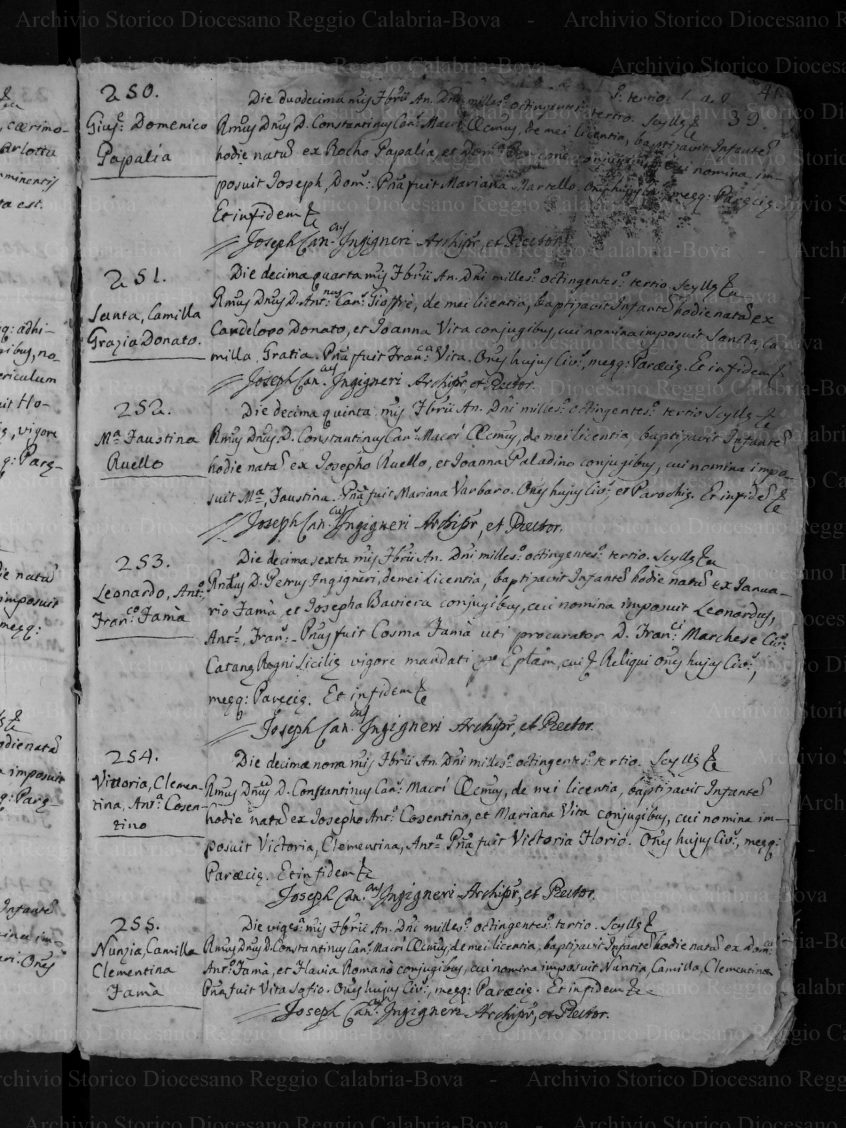 39.
250.
Gius.e Domenico
Papalia
Die duodecima m̃ij 7brij An. Dñi milles.o octingentes.o tertio. Scyllę &
Rm̃us Dñus D. Constantinus Can.s Macrì Œc̃mus, de mei licentia, baptizavit Infantẽ
hodie natũ ex Rocho Papalia, et conjugibus, cui nomina im-
posuit Joseph, Dom.s Pña fuit Mariana Martello. Oñes hujus Civ.s, meęq: Paręcię.
Et in fidem &
Joseph Can.cus Ingigneri Archipr̃, et Rector.
251.
Santa, Camilla
Grazia Donato.
Die decima quarta m̃ij 7brij An. Dñi milles.o octingentes.o tertio Scyllę &
Rm̃us Dñus D. Ant.nus Can.s Gioffrè, de mei licentia, baptizavit Infantẽ hodie natã ex
Candeloro Donato, et Joanna Vita conjugibus, cui nomina imposuit Sancta, Ca-
milla, Gratia. Pña fuit Fran.ca Vita. Oñes hujus Civ.s, meęq: Paræcię. Et in fidem &
Joseph Can.cus Ingigneri Archipr̃, et Rector.
252.
M.a Faustina
Ruello
Die decima quinta m̃ij 7brij An. Dñi milles.o octingentes.o tertio Scyllę &
Rm̃us Dñus D. Constantinus Can.s Macrì Œc̃mus, de mei licentia, baptizavit Infantẽ
hodie natã ex Josepho Ruello, et Joanna Paladino conjugibus, cui nomina impo-
suit M.a, Faustina. Pña fuit Mariana Varbaro. Oñes hujus Civ.s, et Parochię. Et in fidẽ &
Joseph Can.cus Ingigneri Archipr̃, et Rector.
253.
Leonardo, Ant.o
Fran.co Famà
Die decima sexta m̃ij 7brij An. Dñi milles.o octingentes.o tertio. Scyllę &
Rñdus D. Petrus Ingigneri, de mei Licentia, baptizavit Infantẽ hodie natũ ex Janua-
rio Famà, et Josepha Baviera conjugibus, cui nomina imposuit Leonardus,
Ant.s, Fran.s - Pñus fuit Cosma Famà uti procurator D. Fran.ci Marchese Civ.s
Catanę Regni Sicilię vigore mandati Eptam, cui & Reliqui oñes hujus Civ.s,
meęq: Parecię. Et in fidem &
Joseph Can.cus Ingigneri Archipr̃, et Rector.
254.
Vittoria, Clemen-
tina, Ant.a Cosen-
tino
Die decima nona m̃ij 7brij An. Dñi milles.o octingentes.o tertio. Scyllę &
Rm̃us Dñus D. Constantinus Can.s Macrì Œc̃mus, de mei licentia, baptizavit Infantẽ
hodie natã ex Josepho Ant.o Cosentino, et Mariana Vita conjugibus, cui nomina im-
posuit Victoria, Clementina, Ant.a Pña fuit Victoria Florio. Oñes hujus Civ.s, meęq:
Paræcię. Et in fidem &
Joseph Can.cus Ingigneri Archipr̃, et Rector.
255.
Nunzia, Camilla
Clementina
Famà
Die viges.a m̃ij 7brij An. Dñi milles.o octingentes.o tertio. Scyllę &
Rm̃us Dñus D. Constantinus Can.s Macrì Œc̃mus, de mei licentia, baptizavit Infantẽ hodie natã ex Dom.co
Ant.o Famà, et Flavia Romano conjugibus, cui nomina imposuit Nuntia, Camilla, Clementina
Pña fuit Vita Sofio. Oñes hujus Civ.s, meęq: Paræcię. Et in fidem &
Joseph Can.cus Ingigneri Archipr̃, et Rector.
Archivio Storico Diocesano Reggio Calabria-Bova